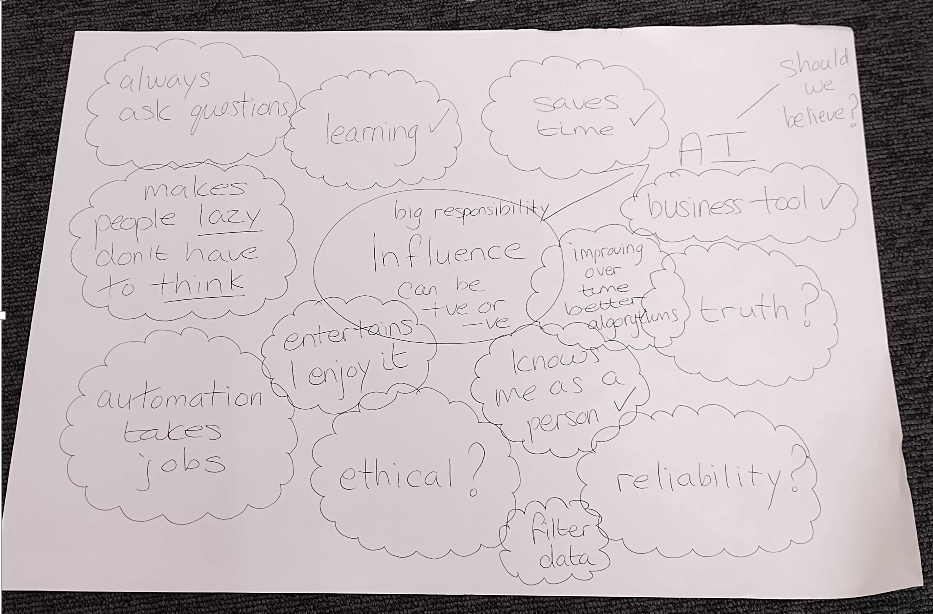 always
ask questions
learning ✓
saves
time ✓
should
we
believe?
AI
makes
people lazy
don't have
to think
big responsibility
Influence
can be
+ve or
-ve
business tool ✓
improving
over
time
better
algorythms
truth?
entertains
I enjoy it
knows
me as a
person ✓
automation
takes
jobs
ethical?
reliability?
filter
data